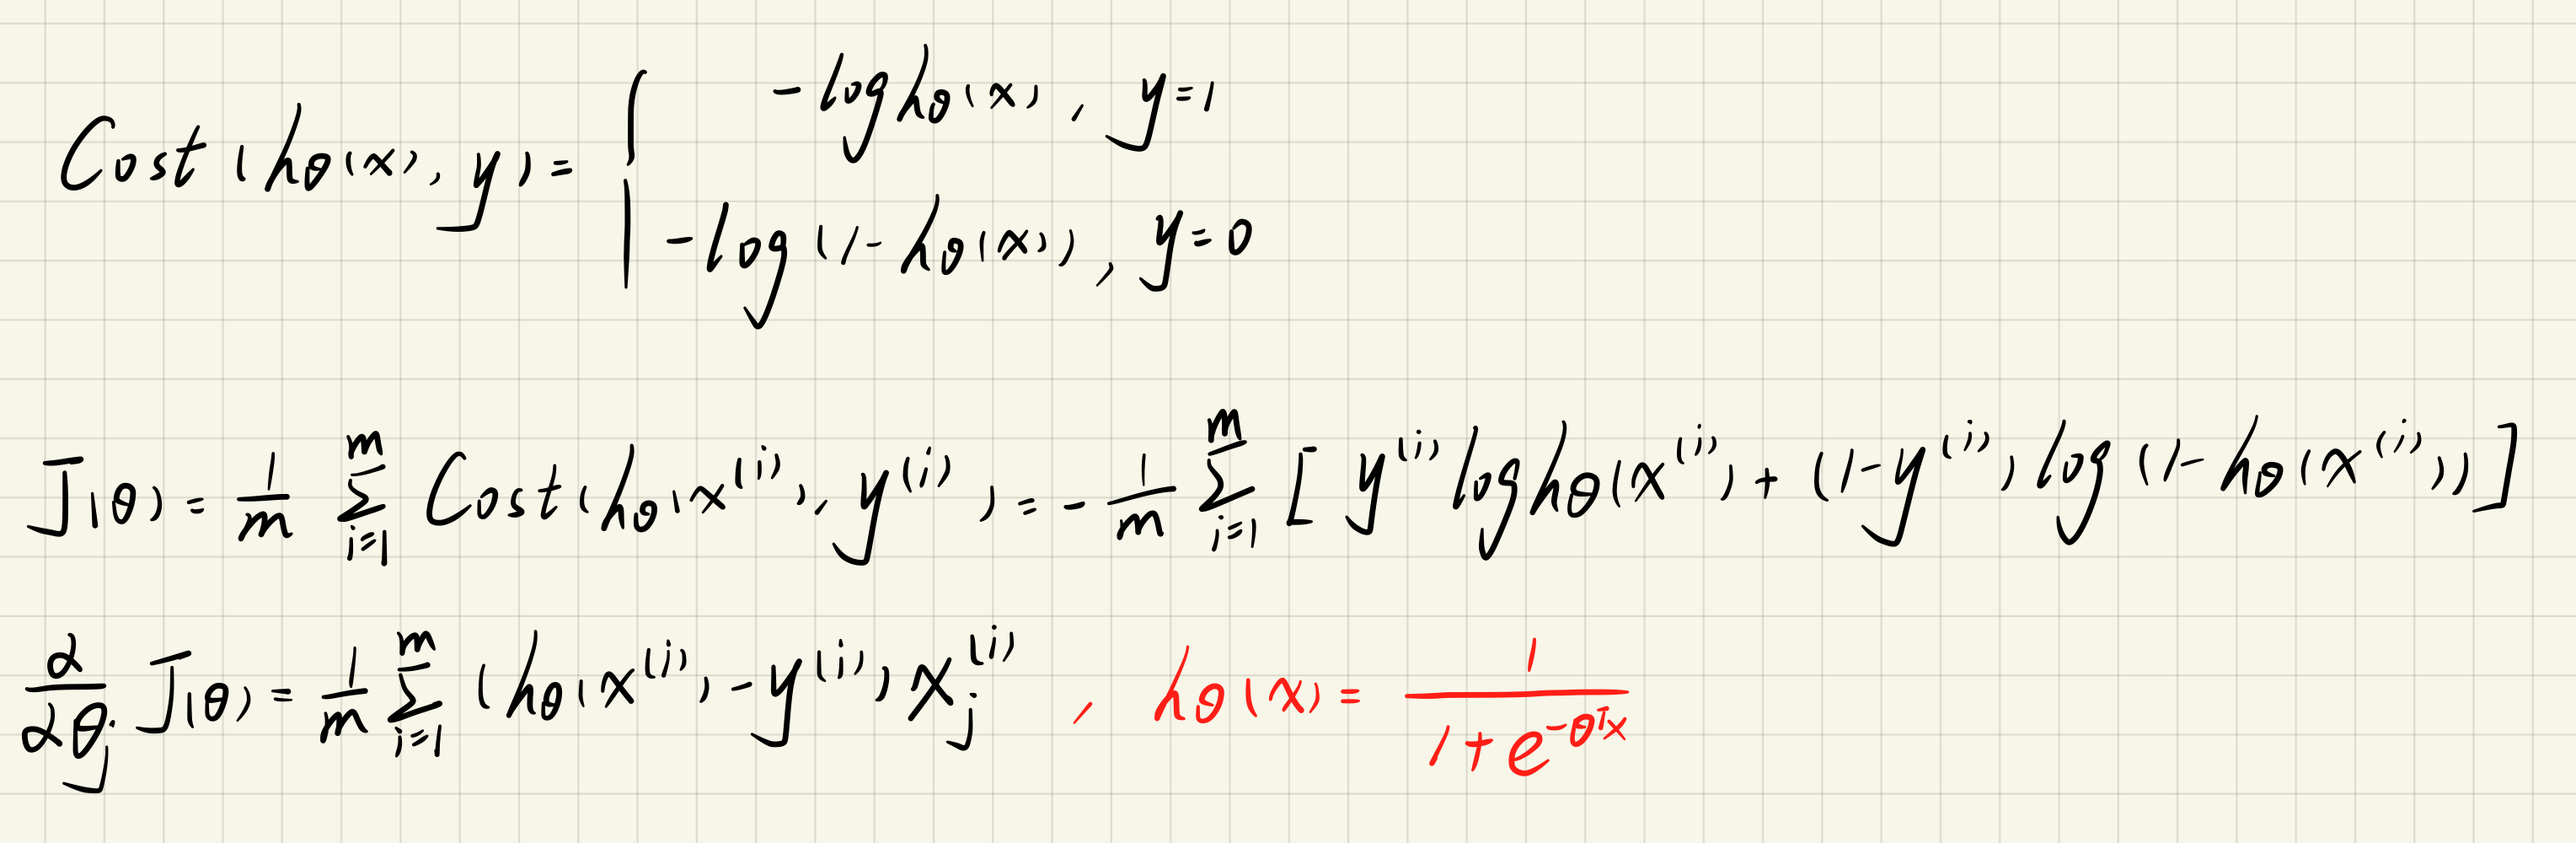 Cost(hθ(x), y) = { -log hθ(x), y=1
-log(1-hθ(x)), y=0
J(θ) = 1/m ∑_{i=1}^{m} Cost(hθ(x^{(i)}), y^{(i)}) = -1/m ∑_{i=1}^{m} [y^{(i)} log hθ(x^{(i)}) + (1-y^{(i)}) log(1-hθ(x^{(i)}))]
∂/∂θ_j J(θ) = 1/m ∑_{i=1}^{m} (hθ(x^{(i)}) - y^{(i)}) x_j^{(i)}, hθ(x) = 1/(1+e^{-θ^T x})